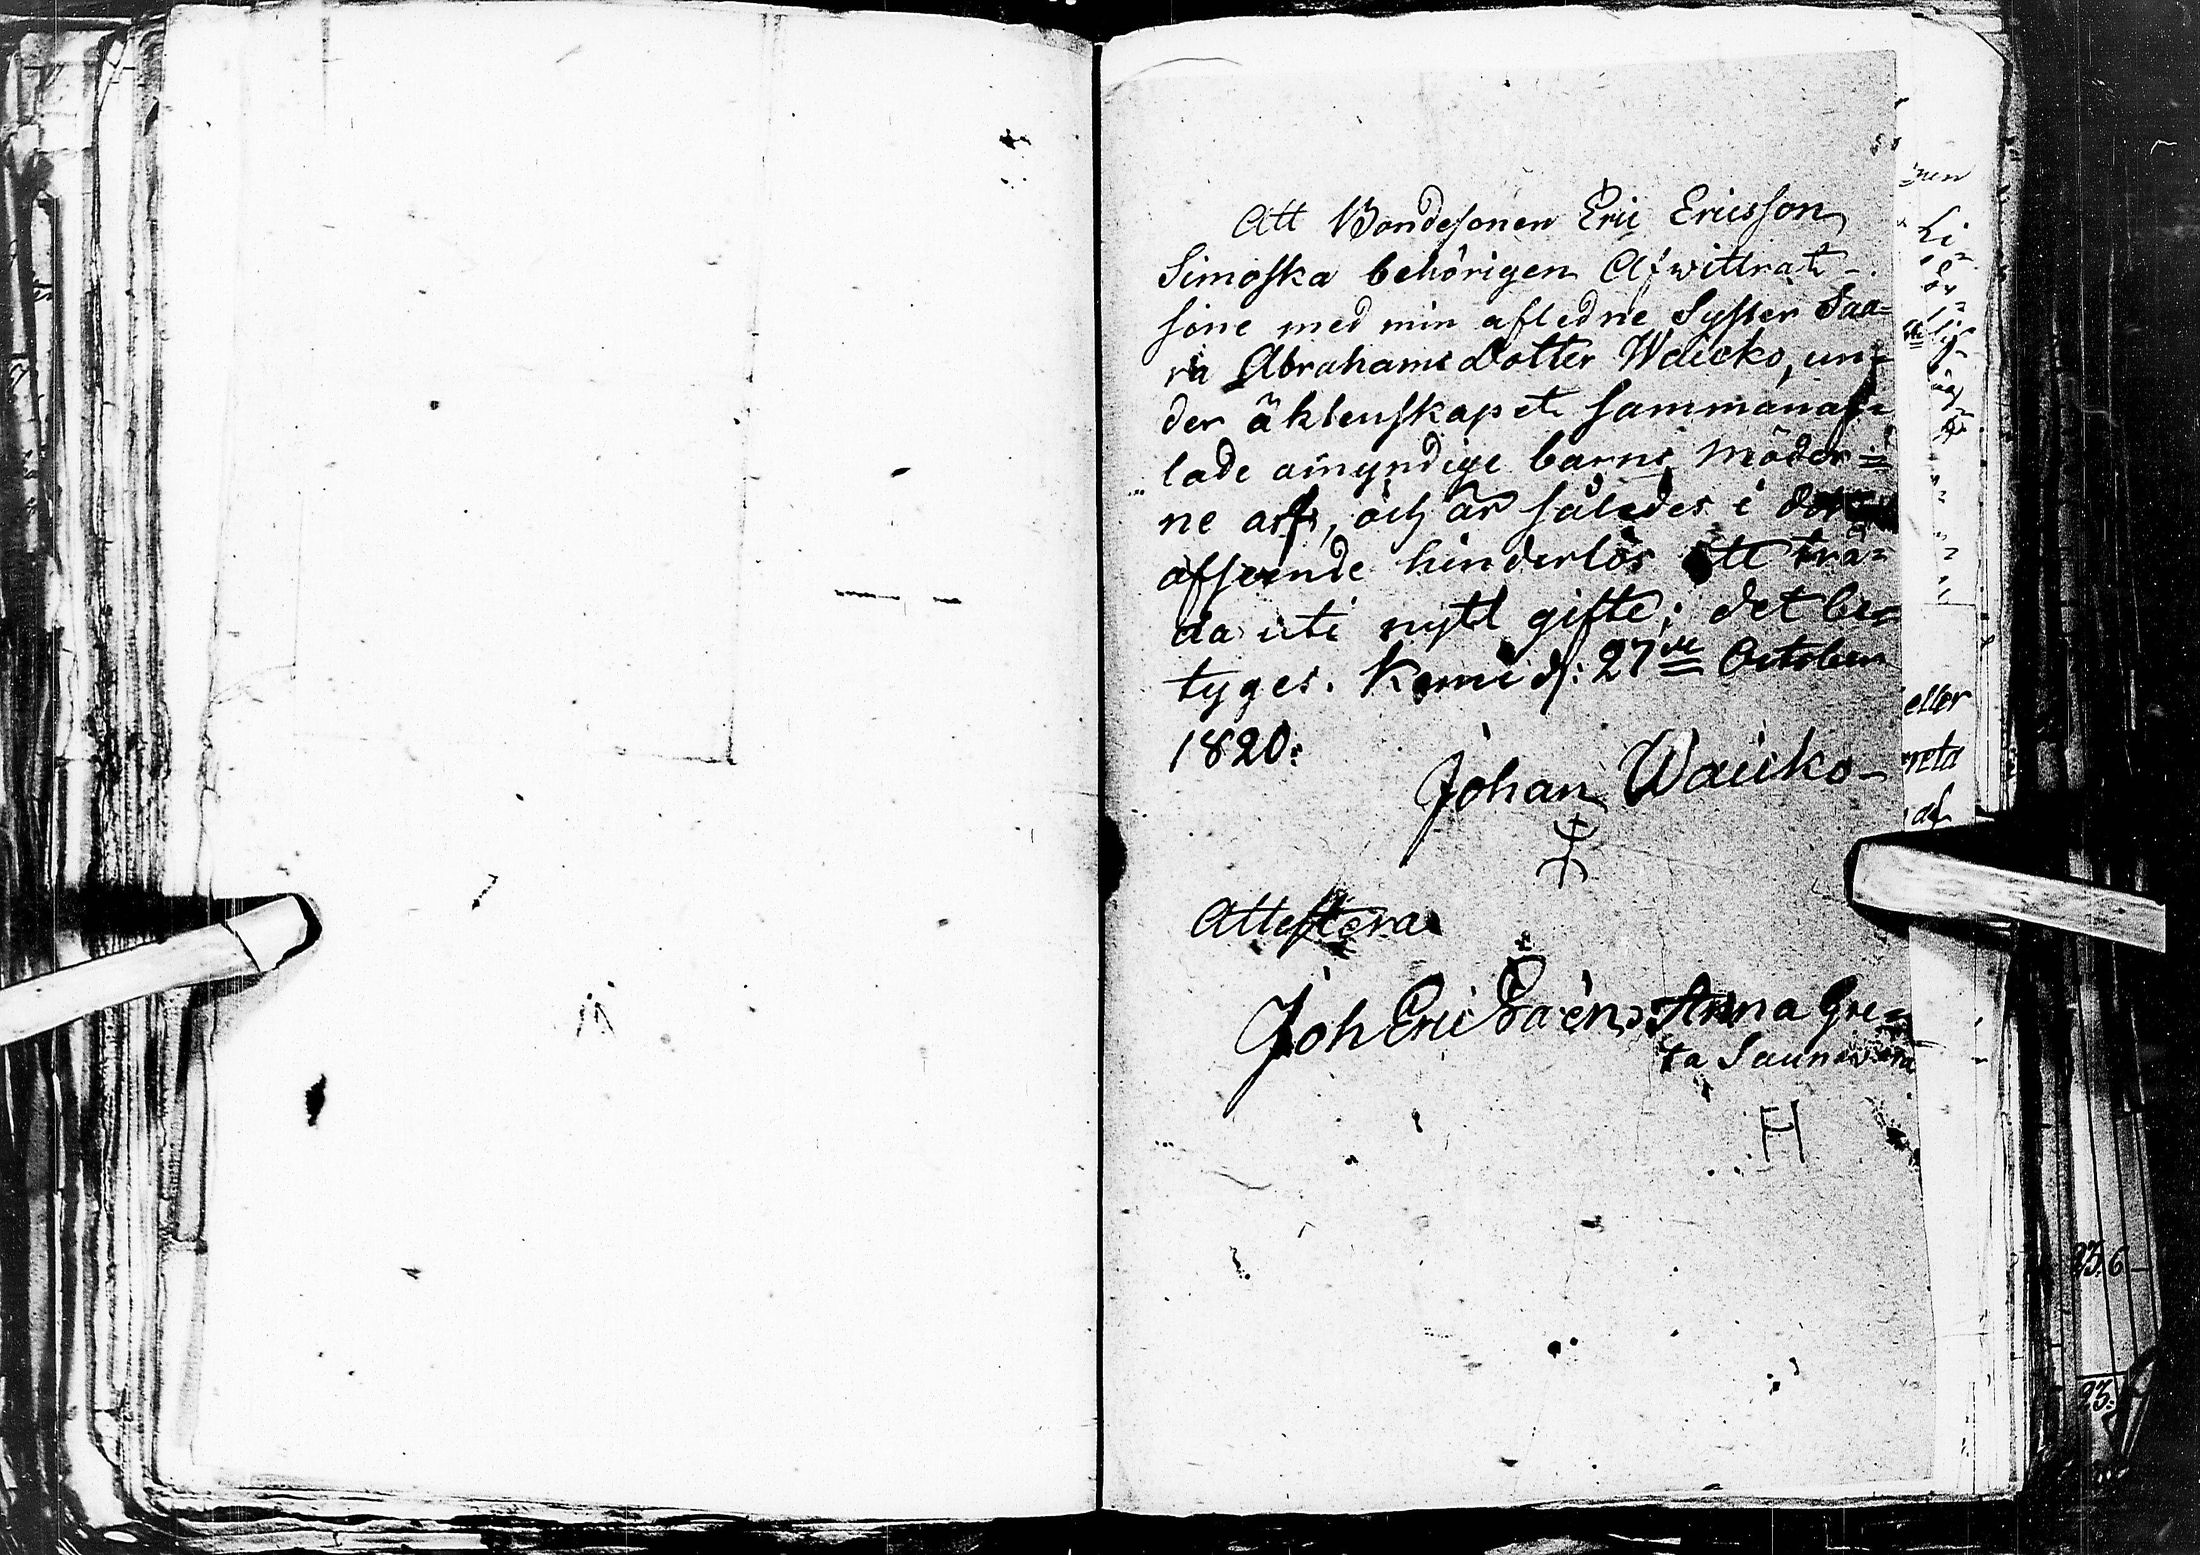 Att Bondesonen Eric Ericsson
Simoska behörigen Afwittrat
sine med min afledne Syster Saa=
ra Abrahams Dotter Waicko, un=
der äktenskapet sammanaf=
lade omyndige barns möder=
ne arf, och är således i
afseende hinderlös att trä=
da uti nytt gifte; det be=
tyges. Kemi d: 27de October
1820:
Johan Waicko
Attestera
Joh Eric Anna Gre=
ta
H
nen
eller
reta
af
23 6
23